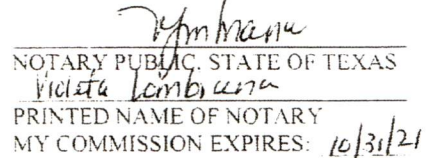 NOTARY PUBLIC, STATE OF TEXAS
Violeta
PRINTED NAME OF NOTARY
MY COMMISSION EXPIRES: 10/31/21